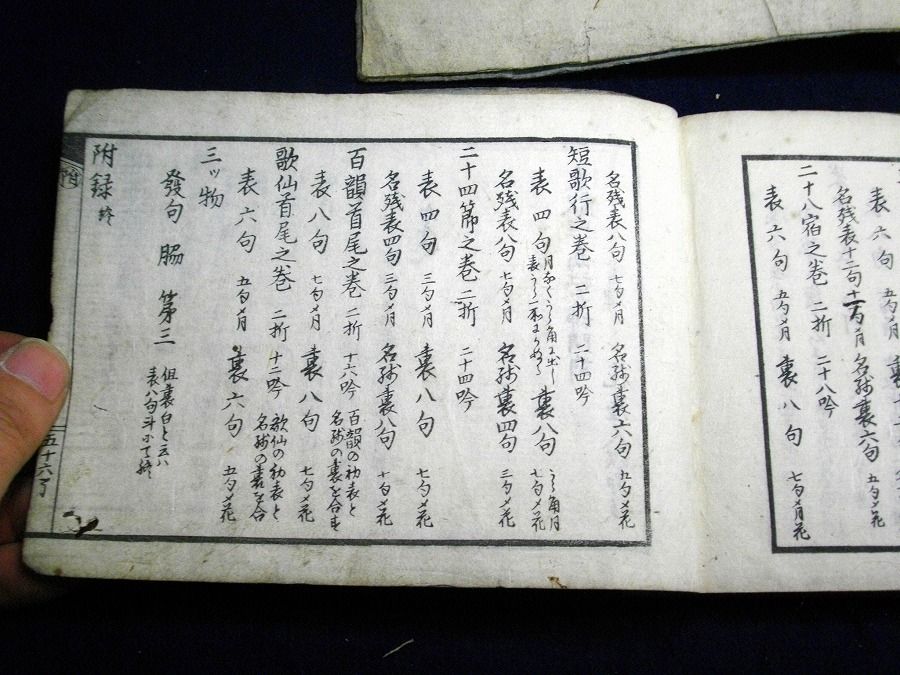 表六句 五句〆月
名残表十二句 十一句〆月 名残裏六句 五句〆花
二十八宿之巻 二折 二十八吟
表六句 五句〆月 裏八句 七句〆月花
名残表八句 七句〆月 名残裏六句 五句〆花
短歌行之巻 二折 二十四吟
表四句 裏八句 七句〆花
名残表八句 七句〆月 名残裏四句 三句〆花
二十四節之巻 二折 二十四吟
表四句 三句〆月 裏八句 七句〆花
名残表四句 三句〆月 名残裏八句 七句〆花
百韻首尾之巻 二折 十六吟 百韻の初表と名残の裏を合す
表八句 七句〆月 裏八句 七句〆花
歌仙首尾之巻 二折 十二吟 歌仙の初表と名残の裏を合
表六句 五句〆月 裏六句 五句〆花
三ッ物
發句 脇 第三 但裏白と云ハ表八句斗にて終
附録 終
附
五十六丁